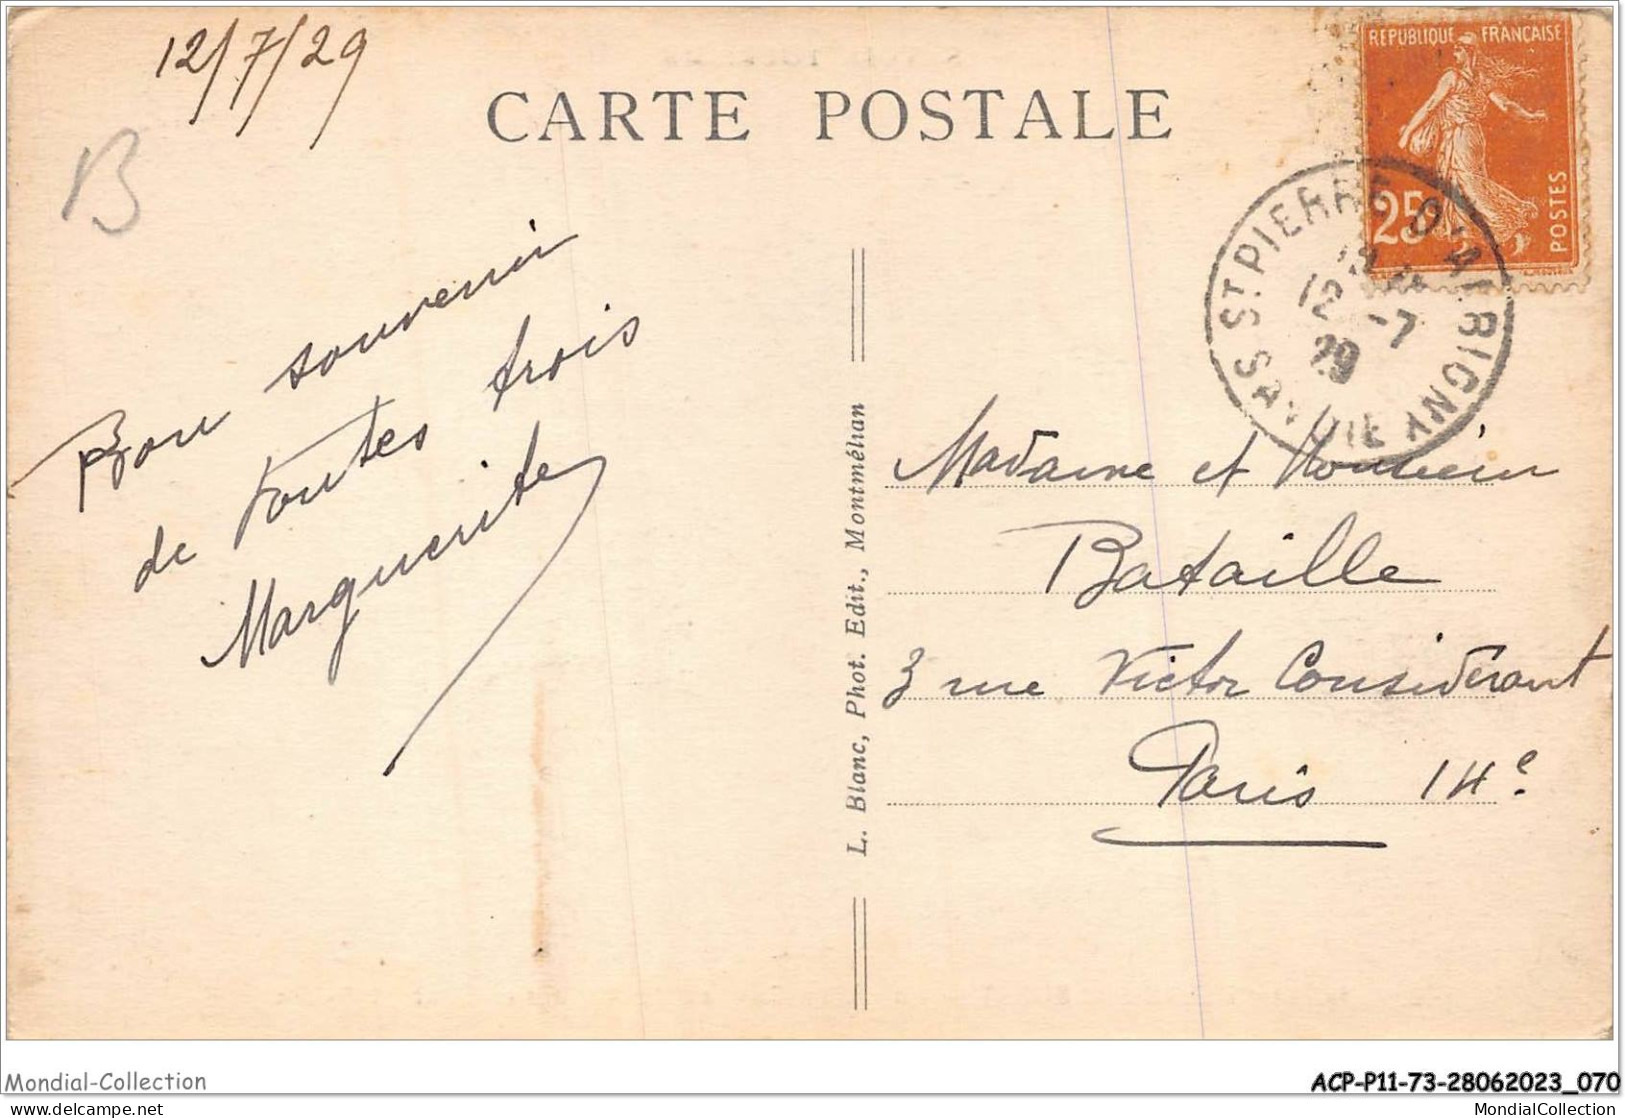 12/7/29
CARTE POSTALE
REPUBLIQUE FRANÇAISE
25
POSTES
ST PIERRE D'ALBIGNY
12 -7
29
SAVOIE
B
Bon souvenir
de toutes trois
Marguerite
L. Blanc, Phot. Edit., Montmélian
Madame et Monsieur
Bataille
3 rue Victor Considerant
Paris 14e.
Mondial-Collection
ACP-P11-73-28062023_070
MIKE101
MondialCollection